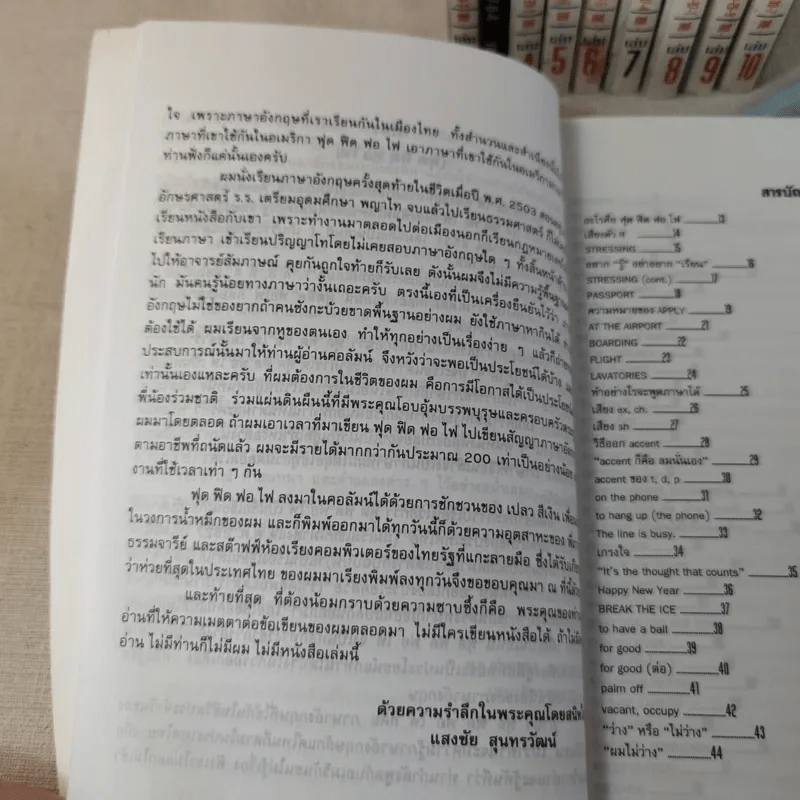 เล่ม
เล่ม
เล่ม
เล่ม
เล่ม
เล่ม
4
5
6
7
8
9
10
ใจ เพราะภาษาอังกฤษที่เราเรียนกันในเมืองไทย ทั้งสำนวนและสำเนียง
ภาษาที่เขาใช้กันในอเมริกา ฟุด ฟิด ฟอ ไฟ เอาภาษาที่เขาใช้กันในอเมริกา
ท่านฟังก็แค่นั้นเองครับ
ผมนั่งเรียนภาษาอังกฤษครั้งสุดท้ายในชีวิตเมื่อปี พ.ศ. 2503
อักษรศาสตร์ ร.ร. เตรียมอุดมศึกษา พญาไท จบแล้วไปเรียนธรรมศาสตร์ ก็
เรียนหนังสือกับเขา เพราะทำงานมาตลอดไปต่อเมืองนอกก็เรียนกฎหมาย
เรียนภาษา เข้าเรียนปริญญาโทโดยไม่เคยสอบภาษาอังกฤษใด ๆ ทั้งสิ้น
ไปให้อาจารย์สัมภาษณ์ คุยกันถูกใจท้ายก็รับเลย ดังนั้นผมจึงไม่มีความรู้พื้นฐาน
นัก มันคนรู้น้อยทางภาษาว่างั้นเถอะครับ ตรงนี้เองที่เป็นเครื่องยืนยันไว้ว่า
อังกฤษไม่ใช่ของยากถ้าคนซังกะบ๊วยขาดพื้นฐานอย่างผม ยังใช้ภาษาหากินได้
ต้องใช้ได้ ผมเรียนจากหูของตนเอง ทำให้ทุกอย่างเป็นเรื่องง่าย ๆ แล้วก็
ประสบการณ์นั้นมาให้ท่านผู้อ่านคอลัมน์ จึงหวังว่าจะพอเป็นประโยชน์ได้บ้าง
เท่านั้นเองแหละครับ ที่ผมต้องการในชีวิตของผม คือการมีโอกาสได้เป็นประโยชน์
พี่น้องร่วมชาติ ร่วมแผ่นดินผืนนี้ที่มีพระคุณโอบอุ้มบรรพบุรุษและครอบครัว
ผมมาโดยตลอด ถ้าผมเอาเวลาที่มาเขียน ฟุด ฟิด ฟอ ไฟ ไปเขียนสัญญาภาษา
ตามอาชีพที่ถนัดแล้ว ผมจะมีรายได้มากกว่ากันประมาณ 200 เท่าเป็นอย่างน้อย
งานที่ใช้เวลาเท่า ๆ กัน
ฟุด ฟิด ฟอ ไฟ ลงมาในคอลัมน์ได้ด้วยการชักชวนของ เปลว สีเงิน
ในวงการน้ำหมึกของผม และก็พิมพ์ออกมาได้ทุกวันนี้ก็ด้วยความอุตสาหะของ
ธรรมจารีย์ และสต๊าฟฟ์ห้องเรียงคอมพิวเตอร์ของไทยรัฐที่แกะลายมือ ซึ่งได้รับ
ว่าห่วยที่สุดในประเทศไทย ของผมมาเรียงพิมพ์ลงทุกวันจึงขอขอบคุณมา ณ ที่นี้
และท้ายที่สุด ที่ต้องน้อมกราบด้วยความซาบซึ้งก็คือ พระคุณของ
อ่านที่ให้ความเมตตาต่อข้อเขียนของผมตลอดมา ไม่มีใครเขียนหนังสือได้ ถ้า
อ่าน ไม่มีท่านก็ไม่มีผม ไม่มีหนังสือเล่มนี้
ด้วยความรำลึกในพระคุณโดย
แสงชัย สุนทรวัฒน์
สารบัญ
อะไรคือ ฟุด ฟิด ฟอ ไฟ 13
เสียงตัว 14
STRESSING 15
อยาก "รู้" อย่าอยาก "เรียน" 16
STRESSING (cont.) 17
PASSPORT 18
ความหมายของ APPLY 19
AT THE AIRPORT 21
BOARDING 22
FLIGHT 23
LAVATORIES 24
ทำอย่างไรจะพูดภาษาได้ 25
เสียง ex, ch. 26
เสียง sh 27
วิธีออก accent 28
"accent ก็คือ ลมนั่นเอง" 29
accent ของ t, d, p 30
on the phone 31
to hang up (the phone) 32
The line is busy. 33
เกรงใจ 34
"It's the thought that counts" 35
Happy New Year 36
BREAK THE ICE 37
to have a ball 38
for good 39
for good (ต่อ) 40
palm off 41
vacant, occupy 42
"ว่าง" หรือ "ไม่ว่าง" 43
"ผมไม่ว่าง" 44